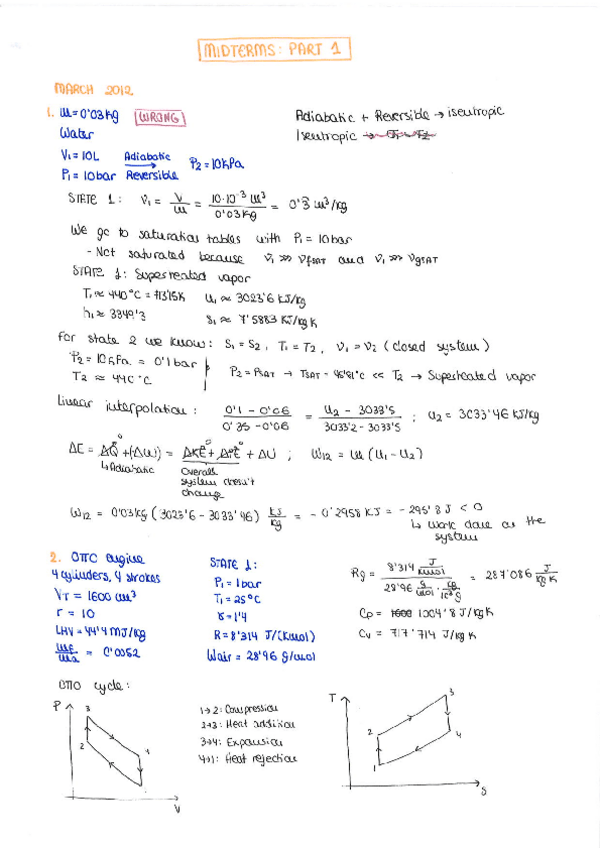 MIDTERMS: PART 1
MARCH 2012
1. m = 0'03 kg [WRONG]
Water
V₁ = 10L Adiabatic
P₁ = 10 bar Reversible P₂ = 10 hPa
Adiabatic + Reversible → isentropic
Isentropic
STATE 1: V₁ = V/m = 10·10⁻³ m³ / 0'03 kg = 0'3 m³/kg
We go to saturation tables with P₁ = 10 bar
- Not saturated because V₁ >>> VfSAT and V₁ >>> VgSAT
STATE 1: Superheated vapor
T₁ ≈ 440°C = 713'15K u₁ ≈ 3023'6 KJ/kg
h₁ ≈ 3349'3 s₁ ≈ 7'5883 KJ/kg K
For state 2 we know: S₁ = S₂, T₁ = T₂, V₁ = V₂ (closed system)
P₂ = 10 hPa = 0'1 bar
T₂ ≈ 440°C
P₂ = PSAT → TSAT = 45'81°C << T₂ → Superheated vapor
Linear interpolation: 0'1 - 0'06 / 0'35 - 0'06 = u₂ - 3033'5 / 3033'2 - 3033'5 ; u₂ = 3033'46 KJ/kg
ΔE = ΔQ⁰ + (ΔW) = ΔKE⁰ + ΔPE⁰ + ΔU ; W₁₂ = m (u₁ - u₂)
↳ Adiabatic Overall
system doesn't
change
W₁₂ = 0'03 kg (3023'6 - 3033'46) KJ/kg = - 0'2958 KJ = - 295'8 J < 0
↳ work done on the
system
2. OTTO engine
4 cylinders, 4 strokes
VT = 1600 cm³
r = 10
LHV = 44'4 MJ/kg
mf/ma = 0'0052
STATE 1:
P₁ = 1 bar
T₁ = 25°C
γ = 1'4
R = 8'314 J/(Kmol)
Wair = 28'96 g/mol
Rg = 8'314 J/Kmol / 28'96 g/mol · kg/10³g = 287'086 J/kg K
Cp = 1004'8 J/kg K
Cv = 717'714 J/kg K
OTTO cycle:
P 3 2 4 V
1→2: Compression
2→3: Heat addition
3→4: Expansion
4→1: Heat rejection
T 3 2 4 1 S